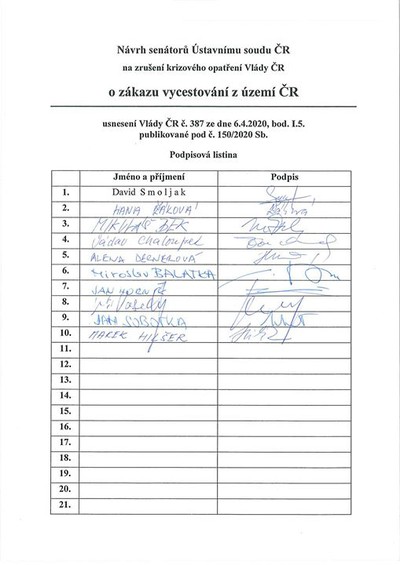 Návrh senátorů Ústavnímu soudu ČR
na zrušení krizového opatření Vlády ČR
o zákazu vycestování z území ČR
usnesení Vlády ČR č. 387 ze dne 6.4.2020, bod. I.5.
publikované pod č. 150/2020 Sb.
Podpisová listina
Jméno a příjmení Podpis
1. David Smoljak
2. HANA ŽÁKOVÁ
3. MIKULÁŠ BEK
4. Václav Chaloupek
5. ALENA DERNEROVÁ
6. Miroslav BALATKA
7. JAN HORNÍK
8.
9. JAN SOBOTKA
10. MAREK HILŠER
11.
12.
13.
14.
15.
16.
17.
18.
19.
20.
21.